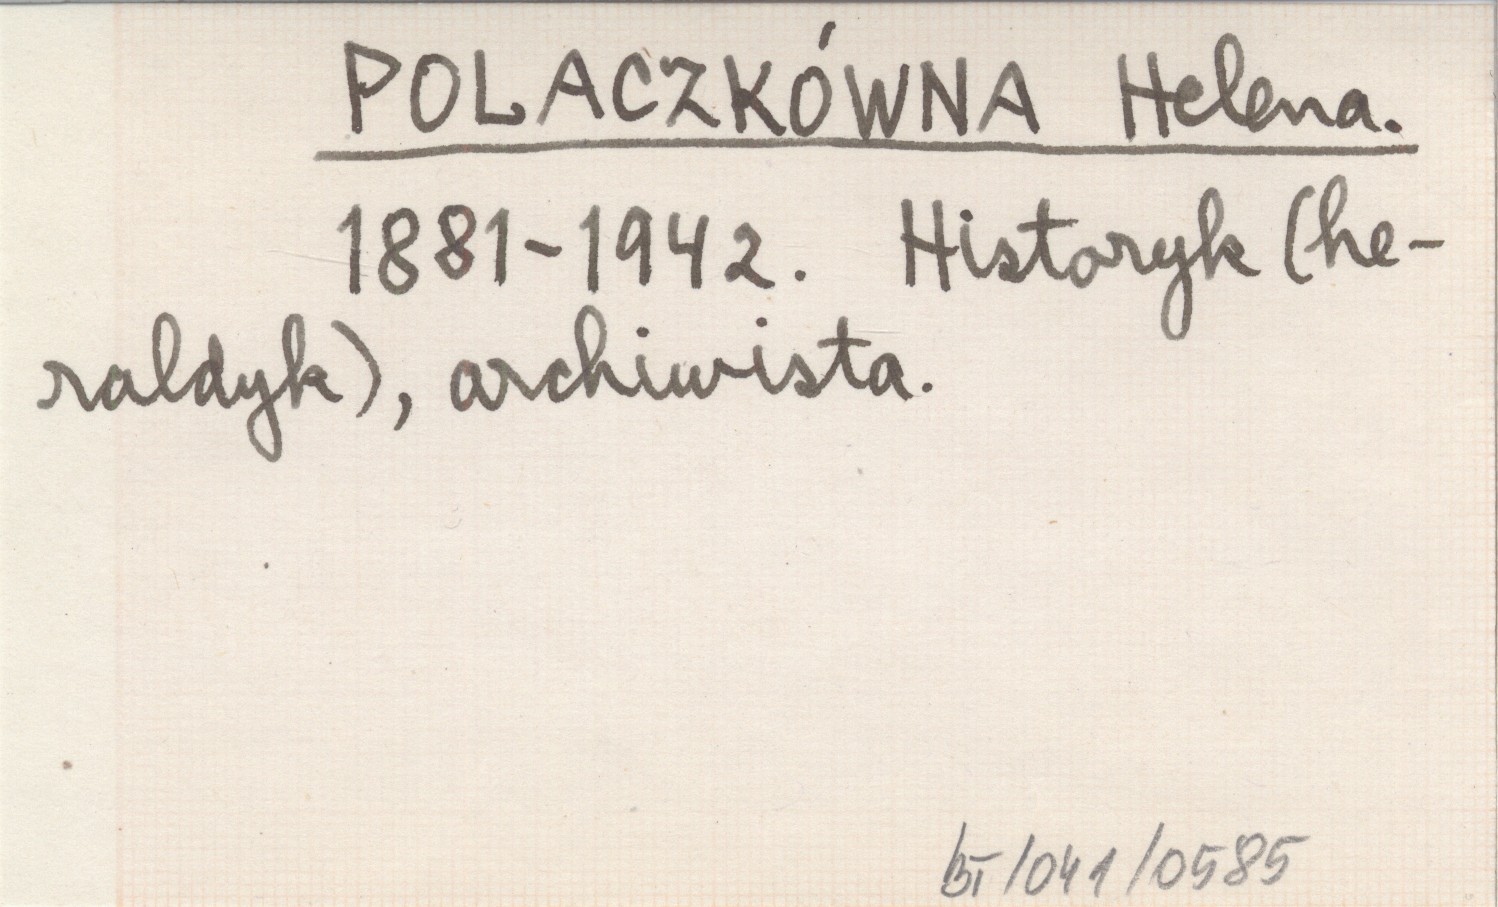 POLACZKÓWNA Helena.
1881-1942. Historyk (he-
raldyk), archiwista.
BI/041/0585